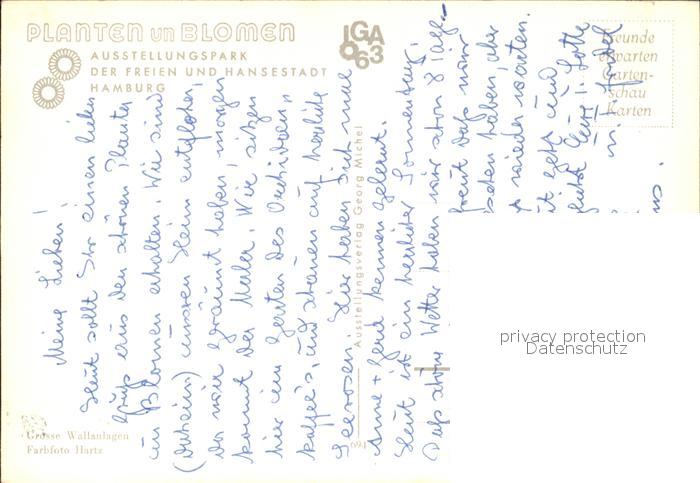 PLANTEN un BLOMEN
AUSSTELLUNGSPARK
DER FREIEN UND HANSESTADT
HAMBURG
IGA
63
Freunde
erwarten
Garten-
schau
Karten
Meine Lieben!
Heut sollt Ihr einen lieben
Gruß aus den schönen Planten
un Blomen erhalten. Wir sind
(Daheim) unsren Heim entflohen,
da wir geräumt haben, morgen
kommt der Maler. Wir sitzen
hier im Garten des Orchideen
kaffee's, und schauen auf herrliche
Seerosen. Hier haben sich mal
Anne + Gerd kennen gelernt.
Heut ist ein herrlicher Sonnentag.
Das schöne Wetter haben wir schon 8 Tage.
freut daß wir
haben, aber
wieder
geht und
Lotte
u.
Ausstellungsverlag Georg Michel
Grosse Wallanlagen
Farbfoto Hartz
privacy protection
Datenschutz